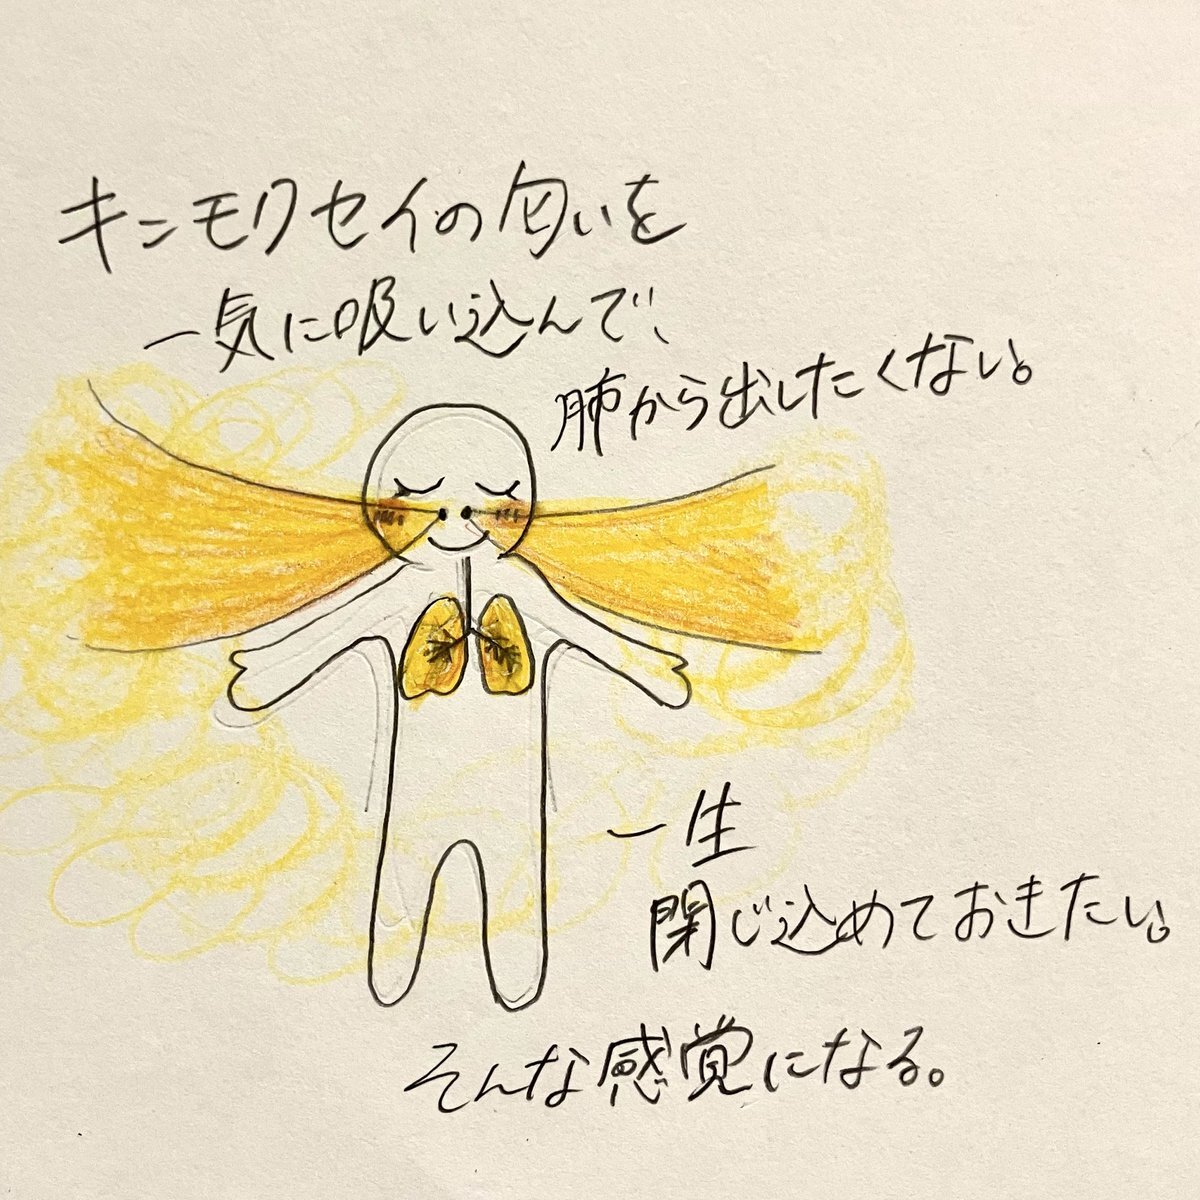 キンモクセイの匂いを
一気に吸い込んで、
肺から出したくない。
一生
閉じ込めておきたい。
そんな感覚になる。